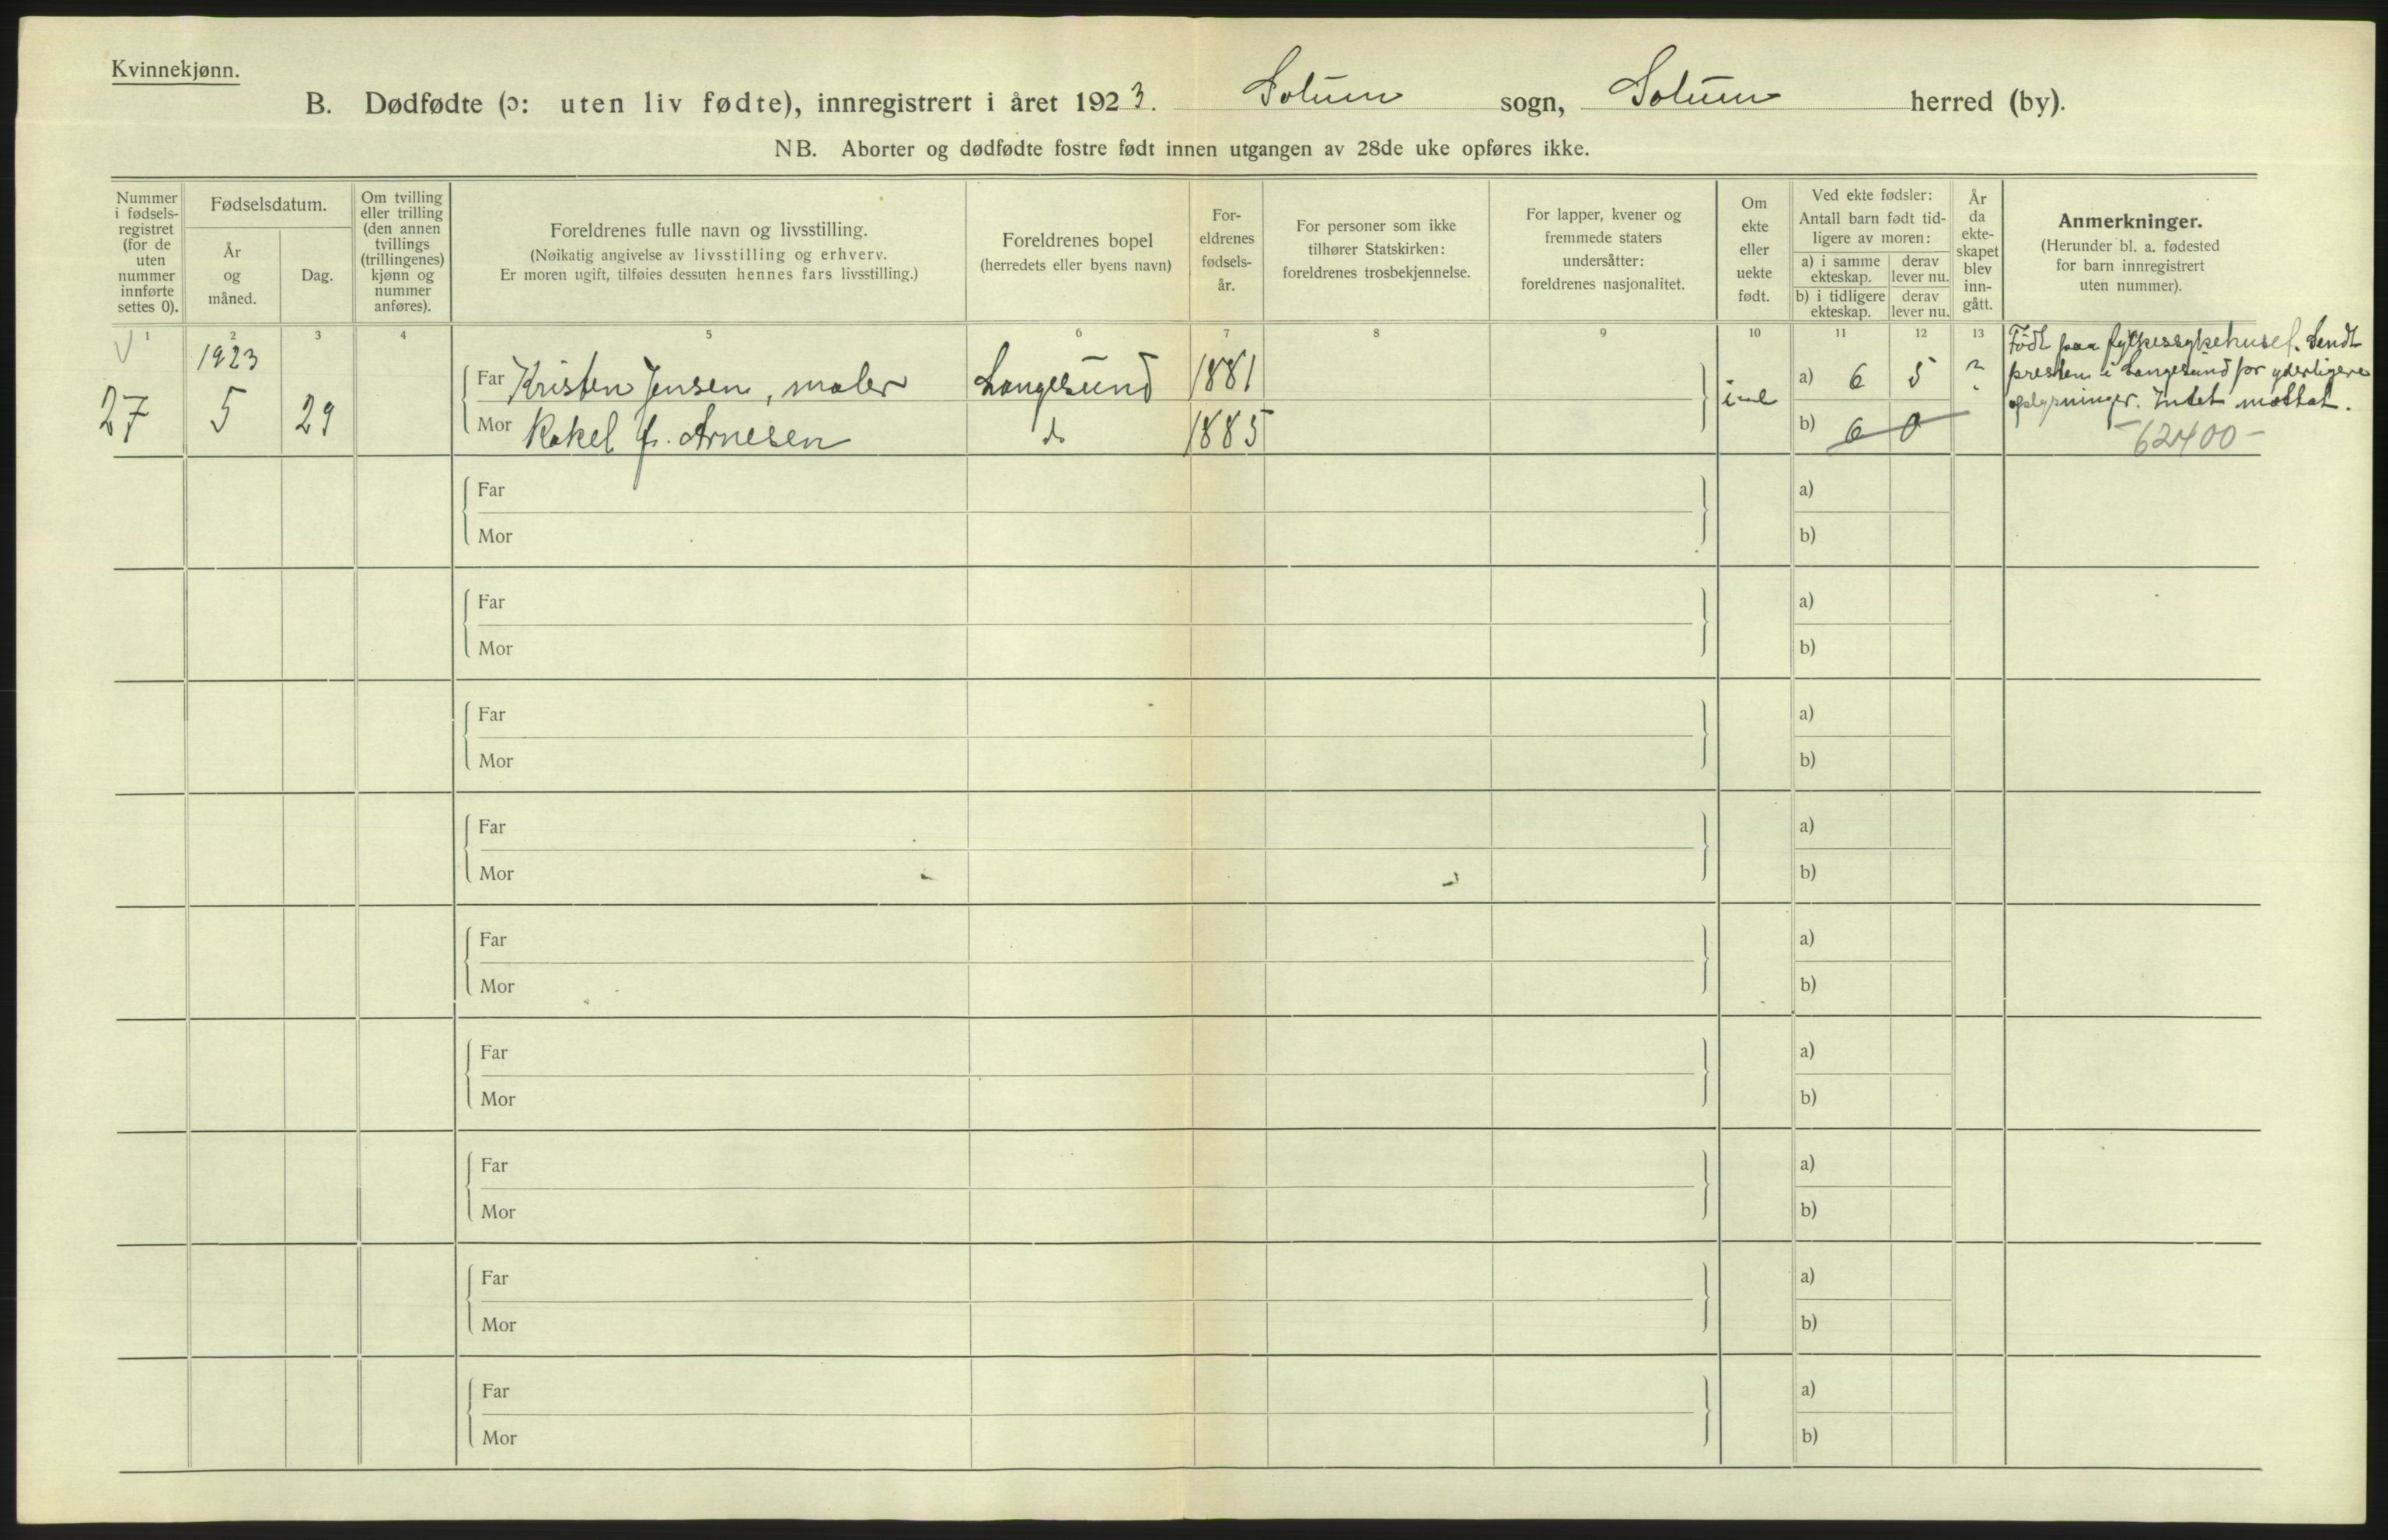 Kvinnekjønn.
B. Dødfødte (ɔ: uten liv fødte), innregistrert i året 1923. Solum sogn, Solum herred (by).
NB. Aborter og dødfødte fostre født innen utgangen av 28de uke opføres ikke.
Nummer
i fødsels-
registret
(for de
uten
nummer
innførte
settes 0).
Fødselsdatum.
År
og
måned.
Dag.
Om tvilling
eller trilling
(den annen
tvillings
(trillingenes)
kjønn og
nummer
anføres).
Foreldrenes fulle navn og livsstilling.
(Nøikatig angivelse av livsstilling og erhverv.
Er moren ugift, tilføies dessuten hennes fars livsstilling.)
Foreldrenes bopel
(herredets eller byens navn)
For-
eldrenes
fødsels-
år.
For personer som ikke
tilhører Statskirken:
foreldrenes trosbekjennelse.
For lapper, kvener og
fremmede staters
undersåtter:
foreldrenes nasjonalitet.
Om
ekte
eller
uekte
født.
Ved ekte fødsler:
Antall barn født tid-
ligere av moren:
a) i samme
ekteskap.
derav
lever nu.
b) i tidligere
ekteskap.
derav
lever nu.
År
da
ekte-
skapet
blev
inn-
gått.
Anmerkninger.
(Herunder bl. a. fødested
for barn innregistrert
uten nummer).
1 2 3 4 5 6 7 8 9 10 11 12 13
1923
27 5 29
Far Kristen Jensen, maler Langesund 1881
Mor Rakel f. Arnesen do 1885
a) 6 5 ?
b) 6 0
Født paa fylkessykehuset. Sendt
presten i Langesund for yderligere
oplysninger. Intet mottat.
-62400-
Far a)
Mor b)
Far a)
Mor b)
Far a)
Mor b)
Far a)
Mor b)
Far a)
Mor b)
Far a)
Mor b)
Far a)
Mor b)
Far a)
Mor b)
Far a)
Mor b)